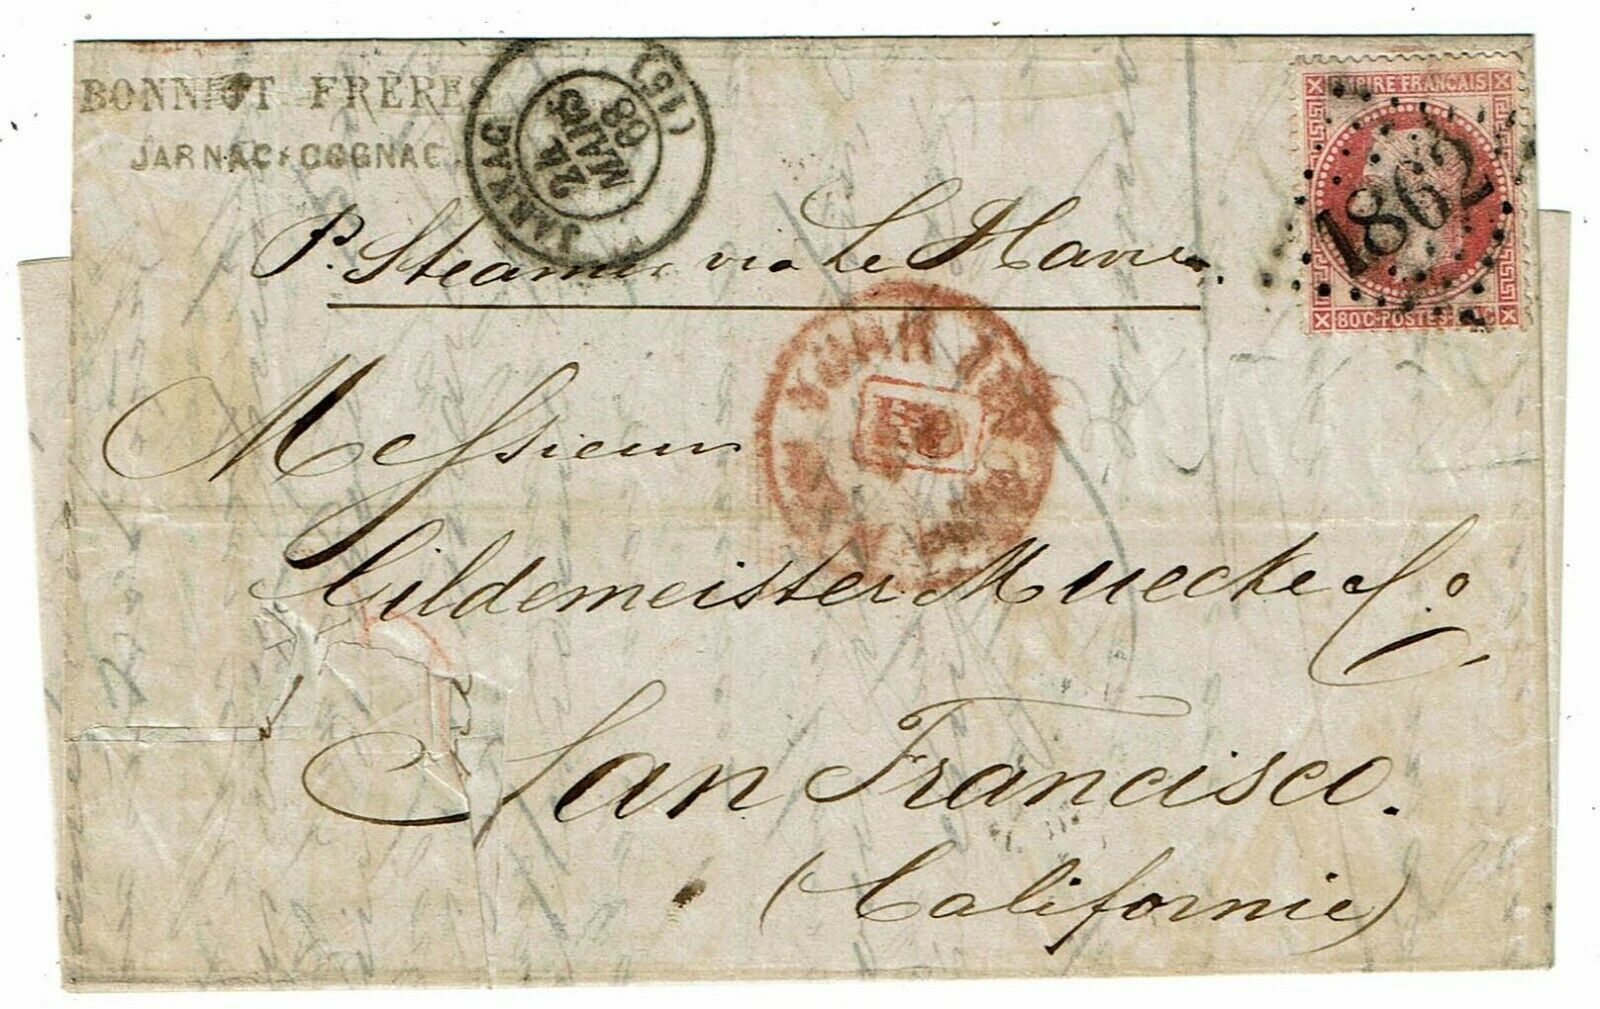 BONNIOT FRERES
JARNAC & COGNAC
JARNAC (15)
24
MARS
68
EMPIRE FRANÇAIS
1862
80 C-POSTES-80 C
P. Steamer via Le Havre.
NEW YORK
PD
Messieurs
Gildemeister Muecke & Co
San Francisco.
(Californie)